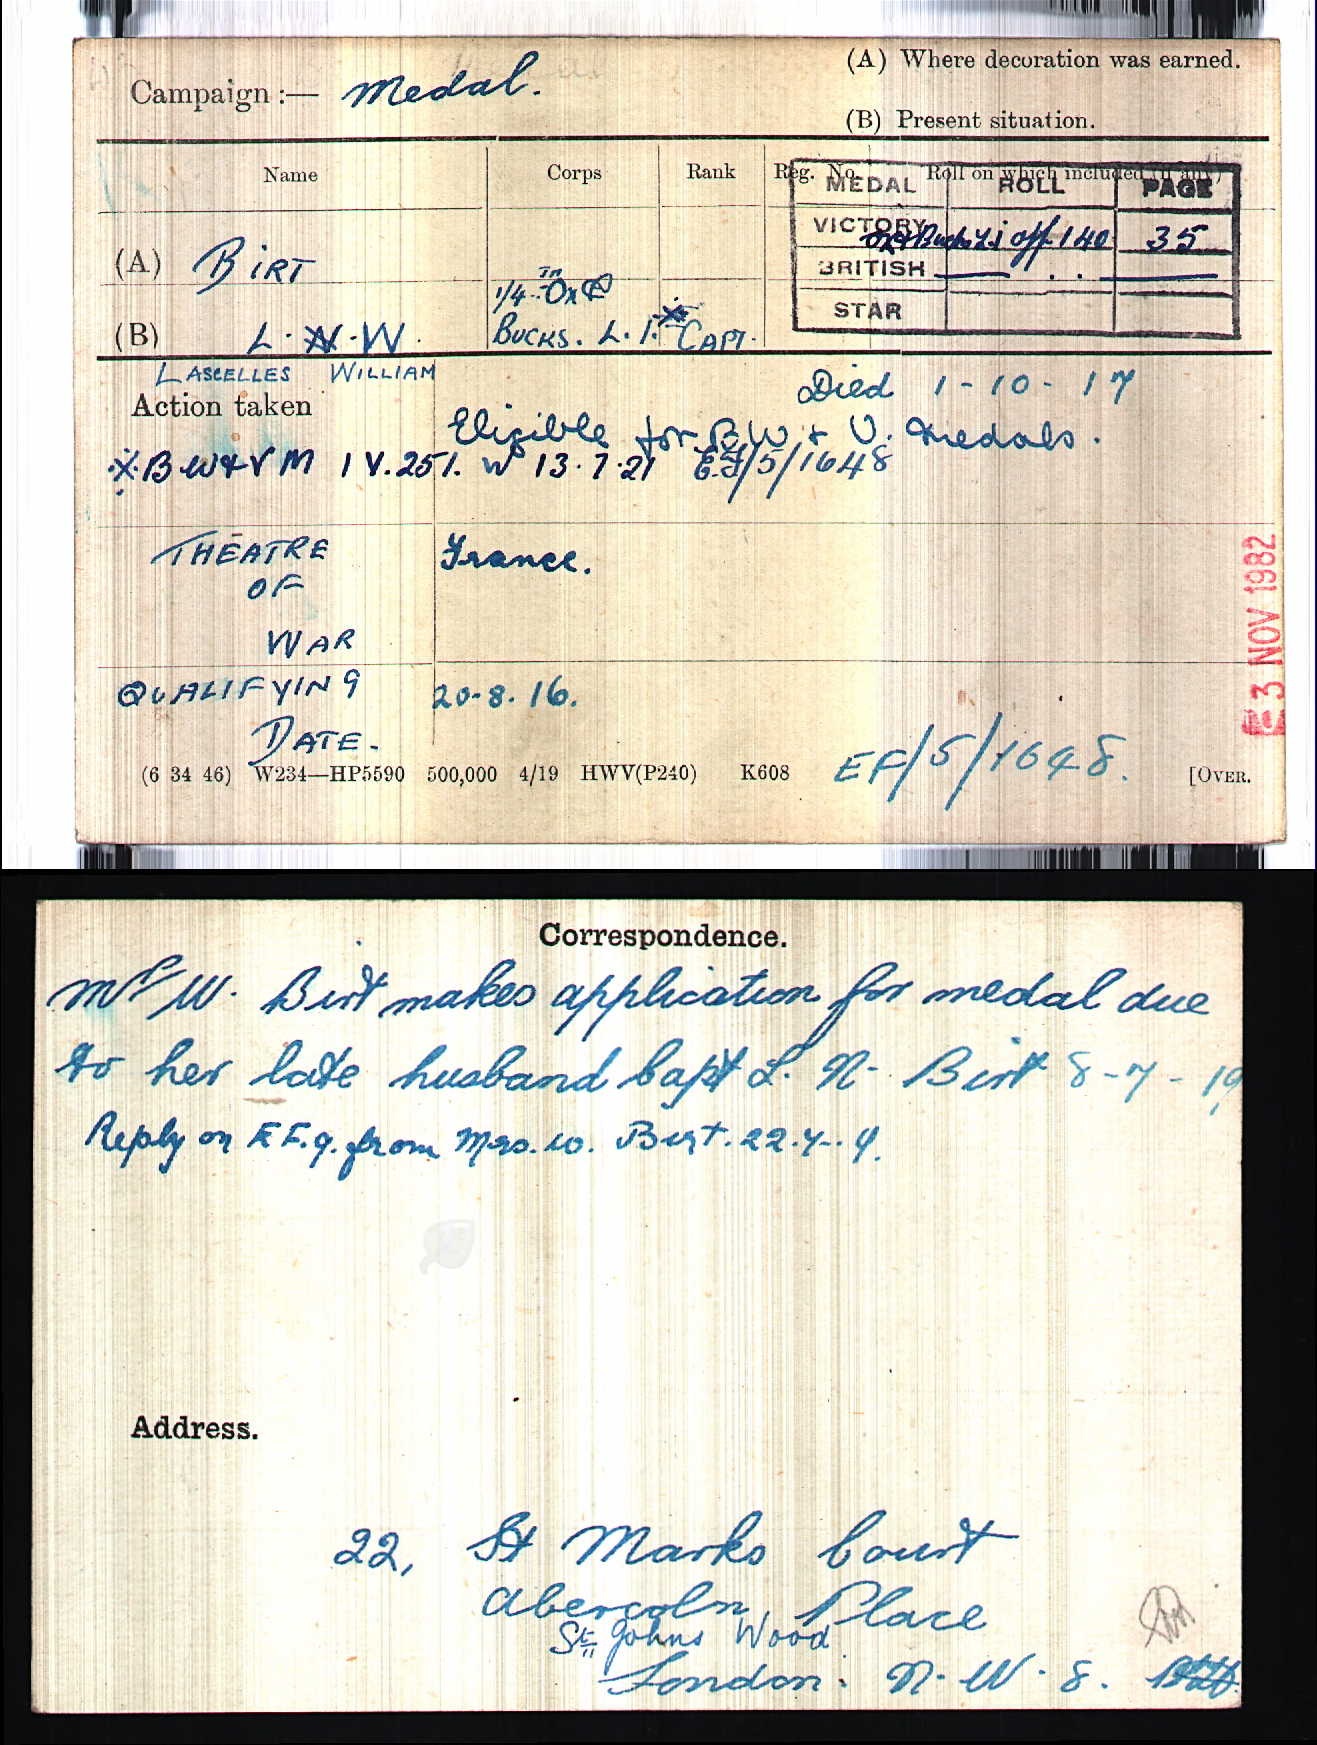 Campaign :— Medal.
(A) Where decoration was earned.
(B) Present situation.
Name Corps Rank Reg. No. Roll on which included (if any)
MEDAL ROLL PAGE
VICTORY Ox & Bucks L.I off. 140 35
BRITISH — . . —
STAR
(A) BIRT
1/4 Ox &
(B) L. N. W. BUCKS. L. I. CAPT.
LASCELLES WILLIAM
Died 1-10-17
Action taken
Eligible for B.W. & V. Medals.
B W & V M IV. 251. W 13.7.21 E.F/5/1648
THEATRE OF WAR
France.
QUALIFYING DATE.
20-8-16.
3 NOV 1982
EF/5/1648.
(6 34 46) W234—HP5590 500,000 4/19 HWV(P240) K608 [OVER.
Correspondence.
Mrs W. Birt makes application for medal due
to her late husband Capt L. N. Birt 8-7-19
Reply on E F.9. from Mrs. W. Birt. 22.4.
Address.
22, St Marks Court
Abercoln Place
St Johns Wood
London. N. W. 8.